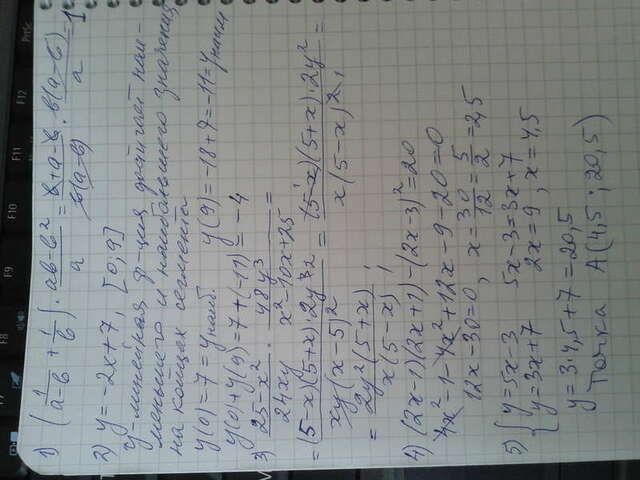 1) (1/(a-b) + 1/b) · (ab-b²)/a = (b+a-b)/(b(a-b)) · b(a-b)/a = 1
2) y = -2x+7, [0;9]
y-линейная ф-ция достигает наи-
меньшего и наибольшего значения
на концах сегмента
y(0)=7=y наиб. y(9)=-18+7=-11=y наим
y(0)+y(9)=7+(-11)=-4
3) (25-x²)/(24xy) · (48y³)/(x²-10x+25) =
= ((5-x)(5+x)·2y²)/(xy(x-5)²) = ((5-x)(5+x)·2y²)/(x(5-x)²) =
= (2y²(5+x))/(x(5-x));
4) (2x-1)(2x+1)-(2x-3)²=20
4x²-1-4x²+12x-9-20=0
12x-30=0, x=30/12=5/2=2,5
5) { y=5x-3 5x-3=3x+7
y=3x+7 2x=9, x=4,5
y=3·4,5+7=20,5
Точка A(4,5; 20,5)
F9
F10
F11
F12